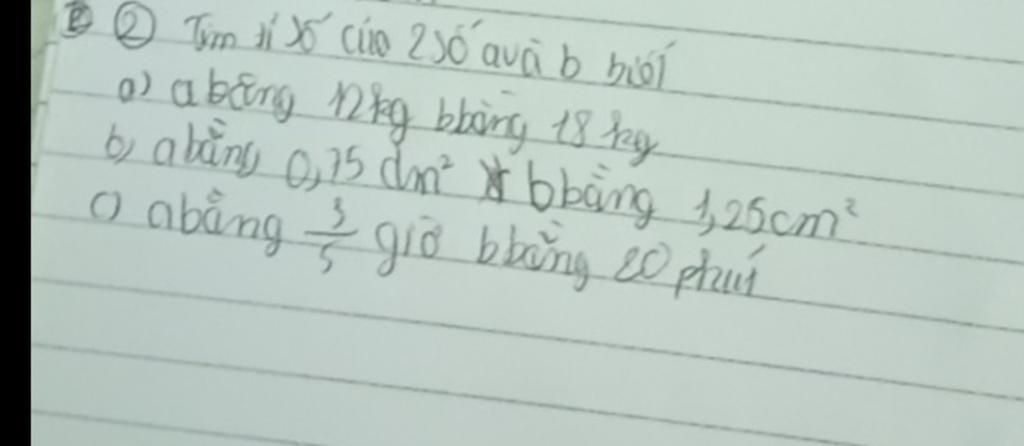 ② Tìm tỉ số của 2 số a và b biết
a) a bằng 12kg b bằng 18 kg
b) a bằng 0,75 dm² b bằng 1,25cm²
c) a bằng 3/5 giờ b bằng 20 phút